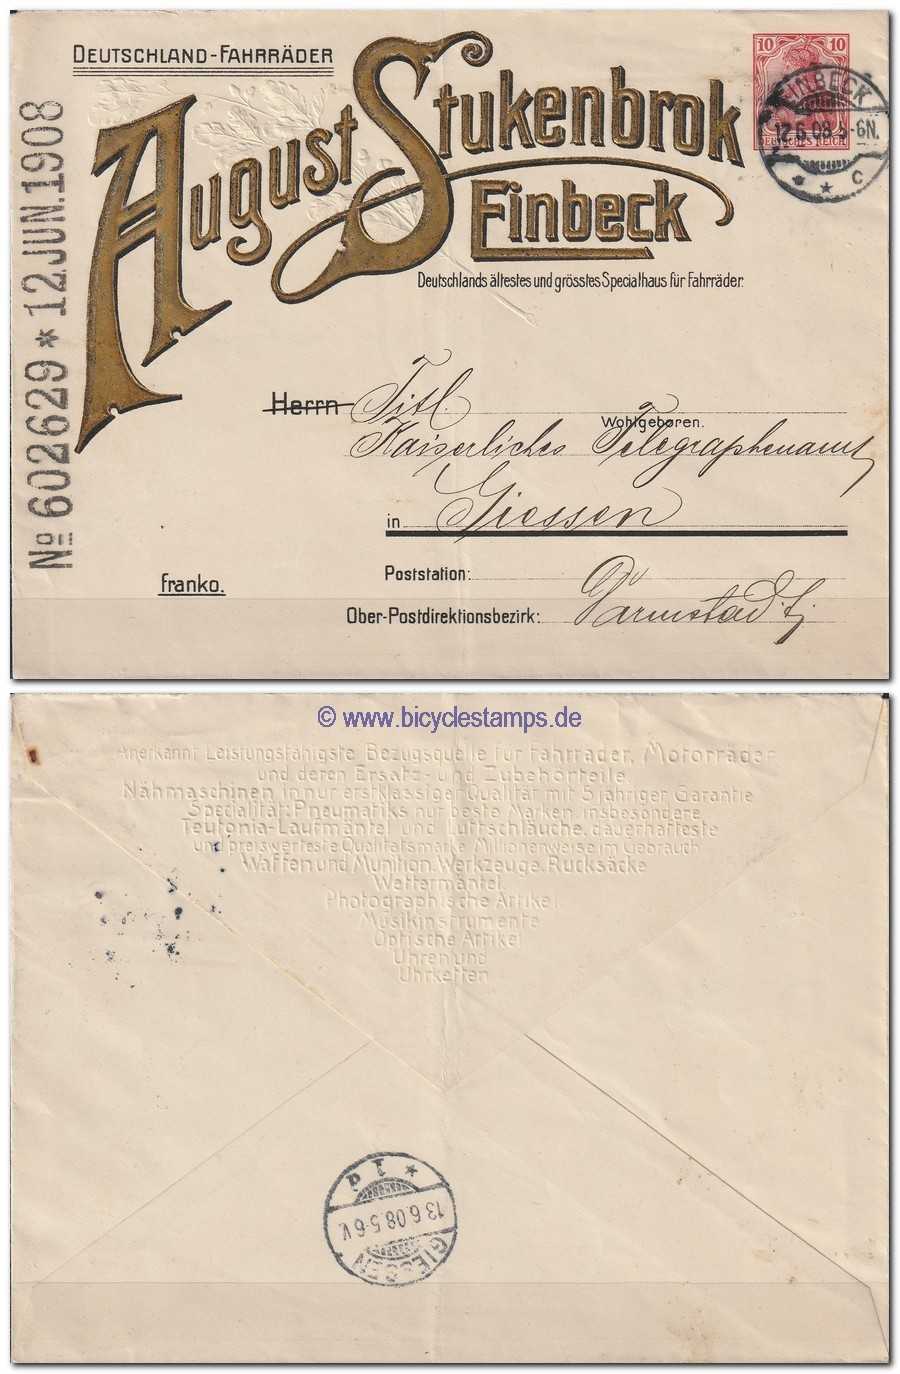 DEUTSCHLAND-FAHRRÄDER
August Stukenbrok
Einbeck
Deutschlands ältestes und grösstes Specialhaus für Fahrräder.
10 10
DEUTSCHES REICH
EINBECK
12.6.08.5-6N.
* * c
No 602629 * 12.JUN.1908
Herrn Titl.
Wohlgeboren.
Kaiserliches Telegraphenamt
in Giessen
Poststation:
franko.
Ober-Postdirektionsbezirk: Darmstadt
© www.bicyclestamps.de
Anerkannt Leistungsfähigste Bezugsquelle für Fahrräder, Motorräder
und deren Ersatz- und Zubehörteile.
Nähmaschinen in nur erstklassiger Qualität mit 5 jähriger Garantie
Specialität: Pneumatiks nur beste Marken, insbesondere
Teutonia-Laufmäntel und Luftschläuche, dauerhafteste
und preiswerteste Qualitätsmarke Millionenweise im Gebrauch
Waffen und Munition. Werkzeuge. Rucksäcke
Wettermäntel.
Photographische Artikel.
Musikinstrumente
Optische Artikel
Uhren und
Uhrketten
GIESSEN
13.6.08.5-6V.
* 1 d